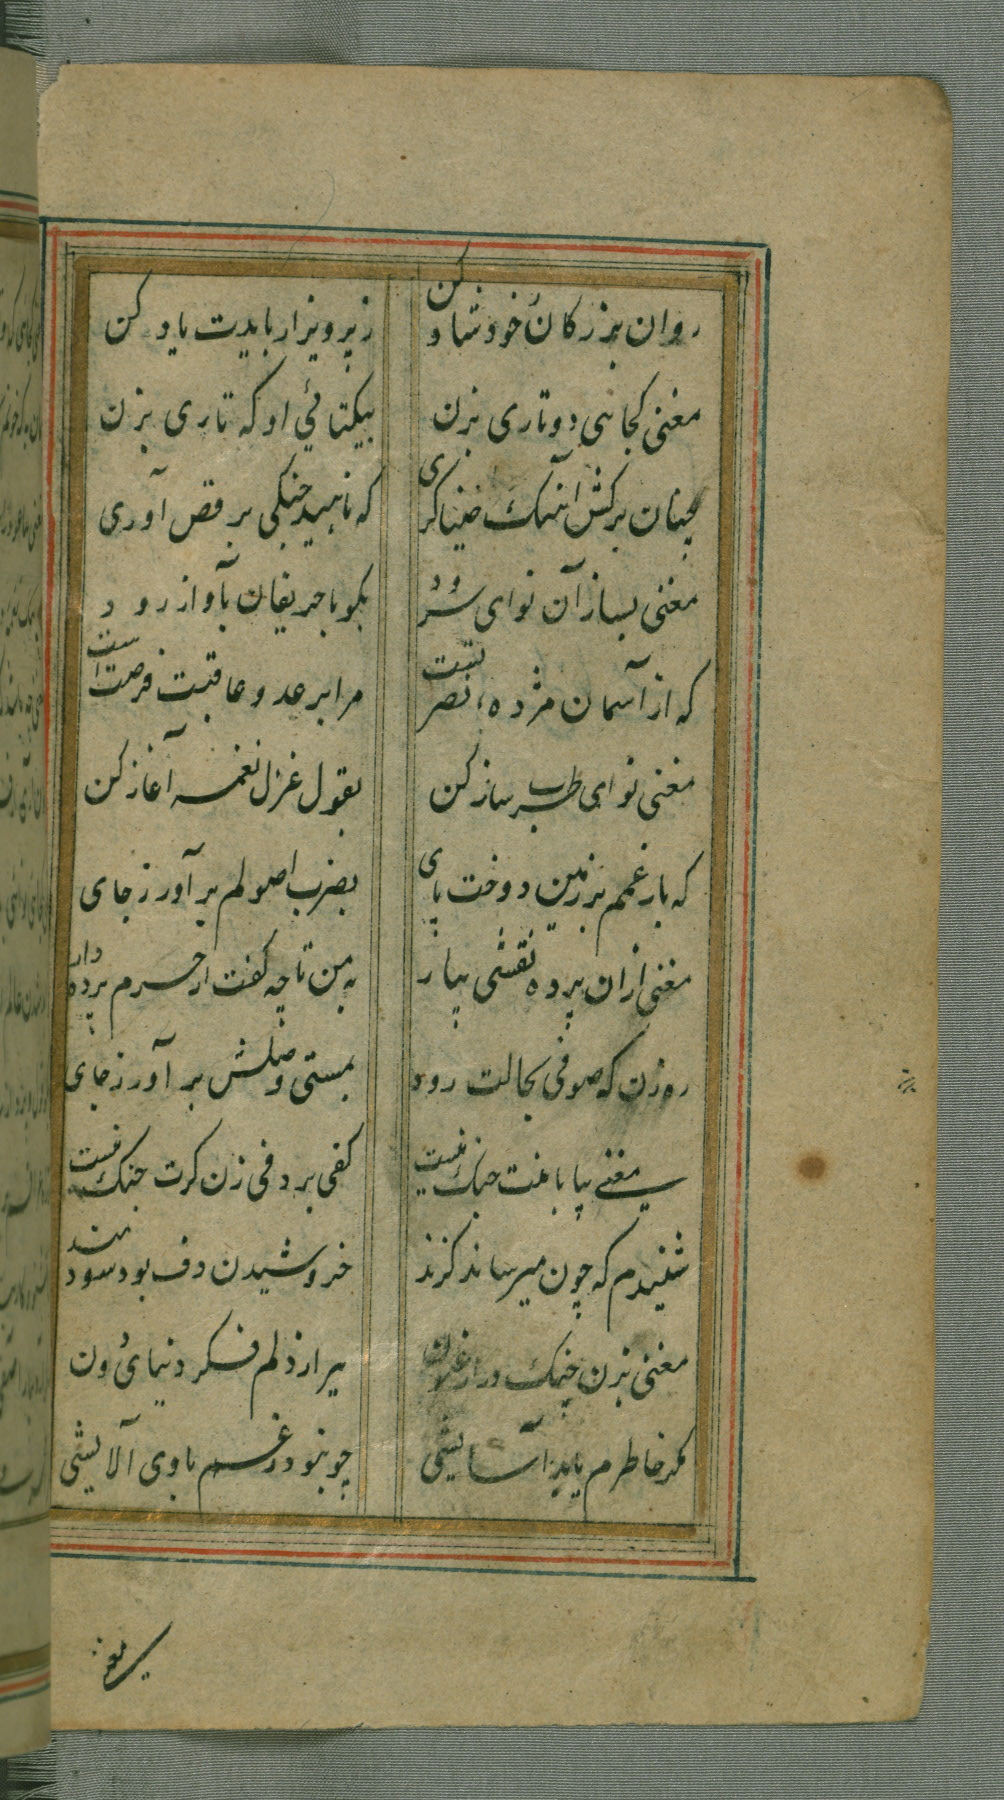 روان بزرکان خود شاد کن زپرویز از باربدت یاد کن
مغنی کجائی دوتاری بزن بیکتائی او که تاری بزن
چنان برکش آهنک خنیاکری که ناهید چنکی برقص آوری
مغنی بساز آن نوای سرود بکو با حریفان بآواز رود
که از آسمان مژده نصرتست مرا بر عدو عاقبت فرصت است
مغنی نوای طرب ساز کن بقول غزل نغمه آغاز کن
که بار غمم بر زمین دوخت پای بضرب اصولم برآور ز جای
مغنی ازان پرده نقشی بیار به من تا چه کفت از حرم پرده دار
ره زن که صوفی بحالت رود بمستی وصلش برآور ز جای
مغنی بیا با منت جنک نیست کفی بر دفی زن کرت چنک نیست
شنیدم که چون میرساند کزند خروشیدن دف بود سودمند
مغنی بزن چنک در ارغنون ببر از دلم فکر دنیای دون
مکر خاطرم یابد آسایشی چو نبود ز غم با وی آلایشی
مغنی